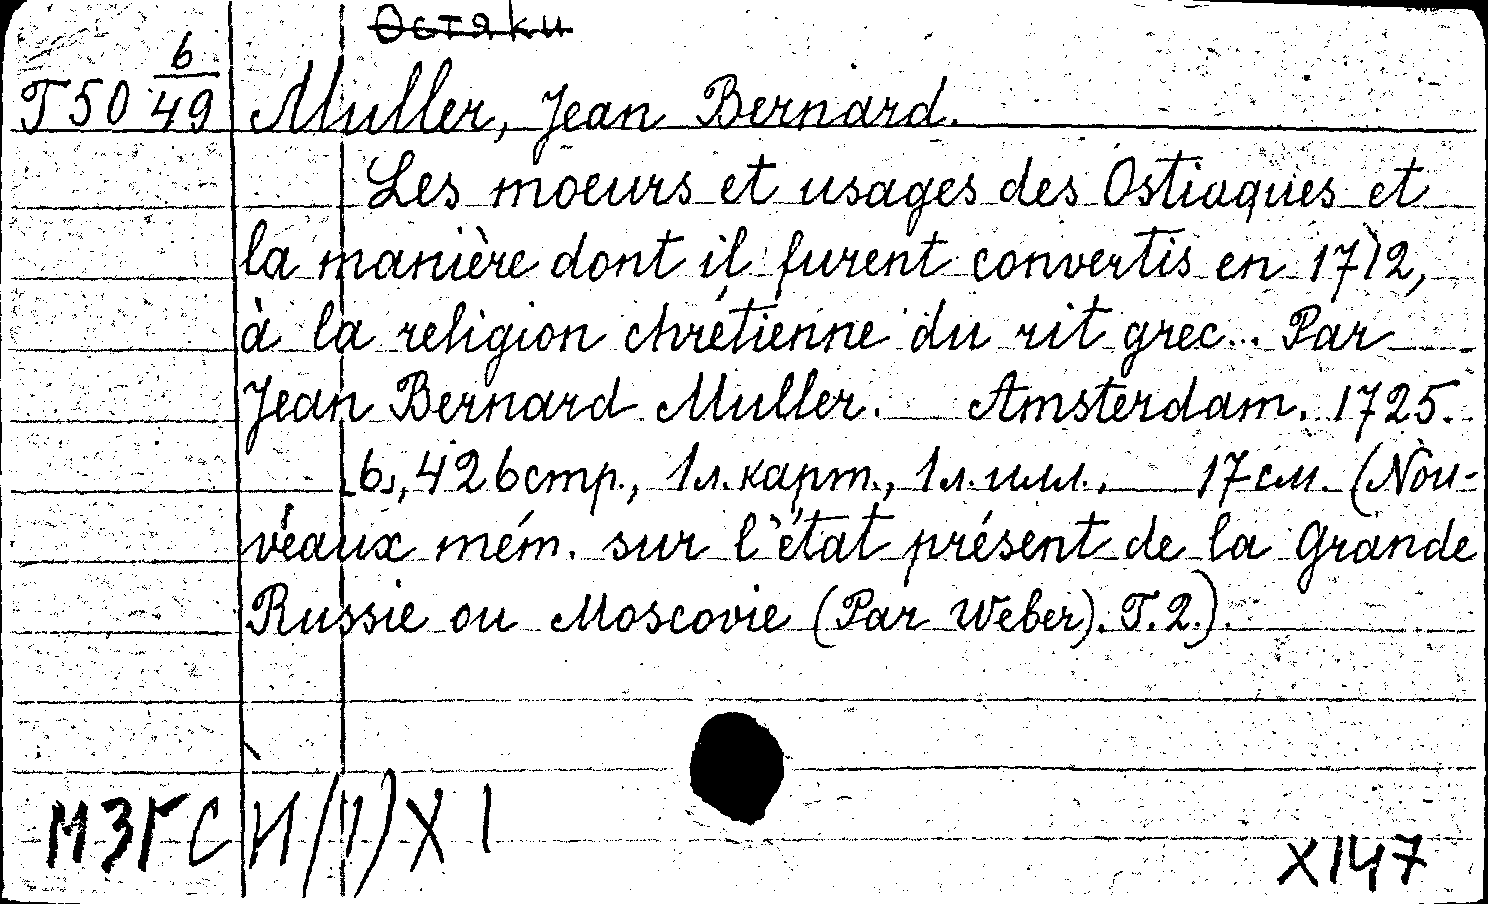 Остяки
Т50 6/49 Muller, Jean Bernard.
Les moeurs et usages des Ostiaques et
la manière dont il furent convertis en 1712,
à la religion chrétienne du rit grec... Par
Jean Bernard Muller. Amsterdam. 1725.
[6], 426 стр., 1 л. карт., 1 л. илл. 17 см. (Nou-
veaux mém. sur l'état présent de la Grande
Russie ou Moscovie (Par Weber). T. 2.).
МЗГС И/1) X 1
X147